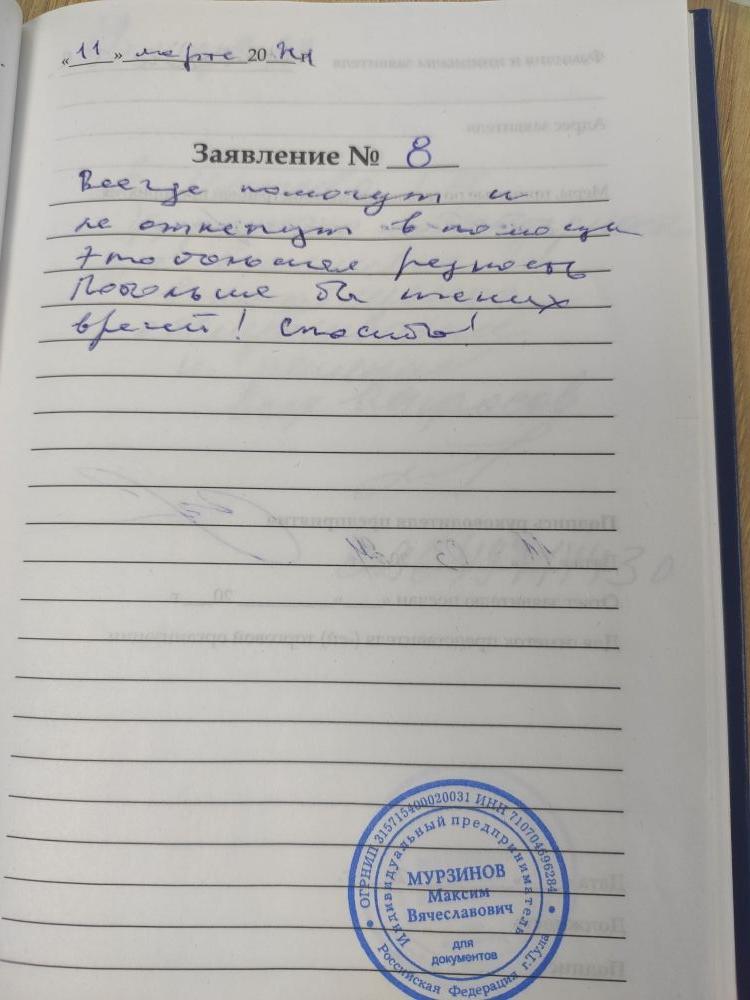 «11» марта 2024 г.
Заявление № 8
Всегда помогут и
не откажут в помощи
Это большая редкость
Побольше бы таких
врачей! Спасибо!
ОГРНИП 315715400020031 ИНН 710704596284
Индивидуальный предприниматель
МУРЗИНОВ
Максим
Вячеславович
для
документов
Российская Федерация г.Тула